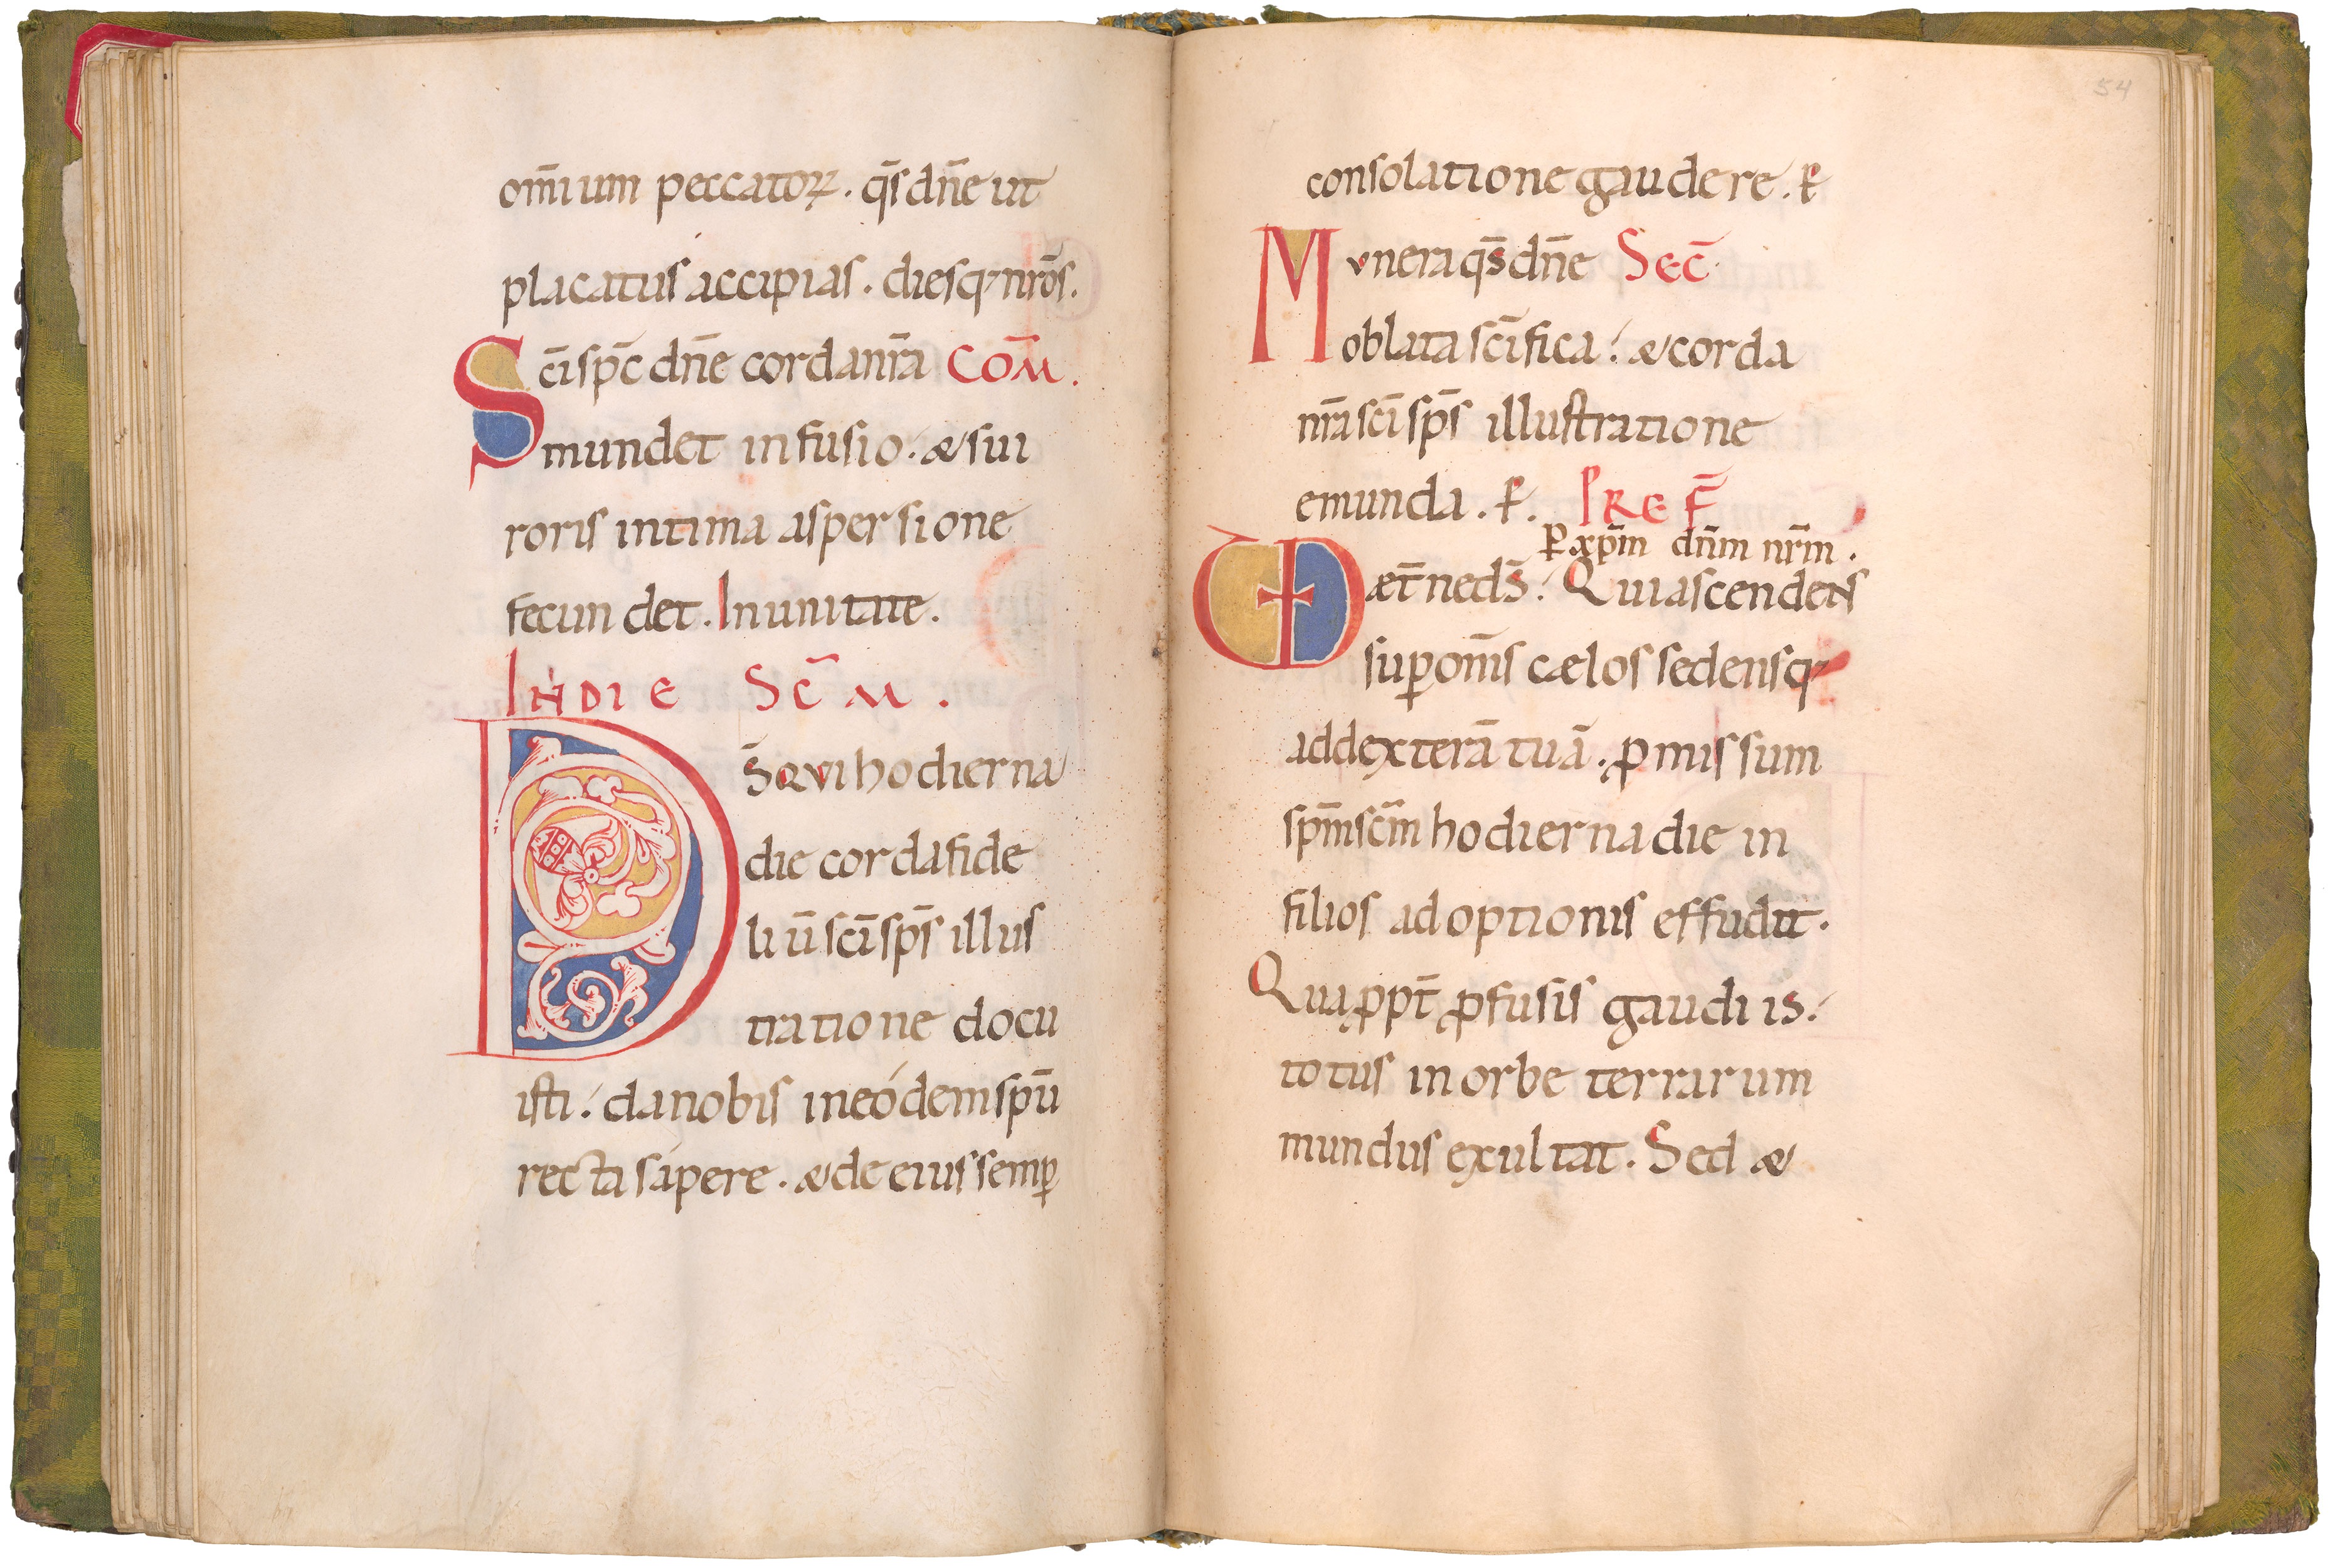 om̄ium peccatoꝝ. q̄s dn̄e ut
placatus accipias. diesq; nr̄os.
Sc̄i sp̄c dn̄e corda nr̄a COM̄.
mundet infusio. & sui
roris intima aspersione
fecundet. In unitate.
IN DIE SC̄M.
DS̄ QVI hodierna
die corda fide
liū sc̄i sp̄s illus
tratione docu
isti. da nobis in eódem spū
recta sápere. & de eius semꝑ
54
consolatione gaudere. P̄
Mvnera q̄s dn̄e SEC̄.
oblata sc̄ifica. & corda
nr̄a sc̄i sp̄s illustratione
emunda. P̄. PREF̄
P xp̄m dn̄m nr̄m.
VD æt̄ne ds̄. Qui ascendens
suꝑ om̄s cælos sedensq;
ad dexterā tuā. ꝓmissum
sp̄m sc̄m hodierna die in
filios adoptionis effudit.
Quaꝓpt̄ ꝓfusis gaudiis.
totus in orbe terrarum
mundus exultat. Sed &